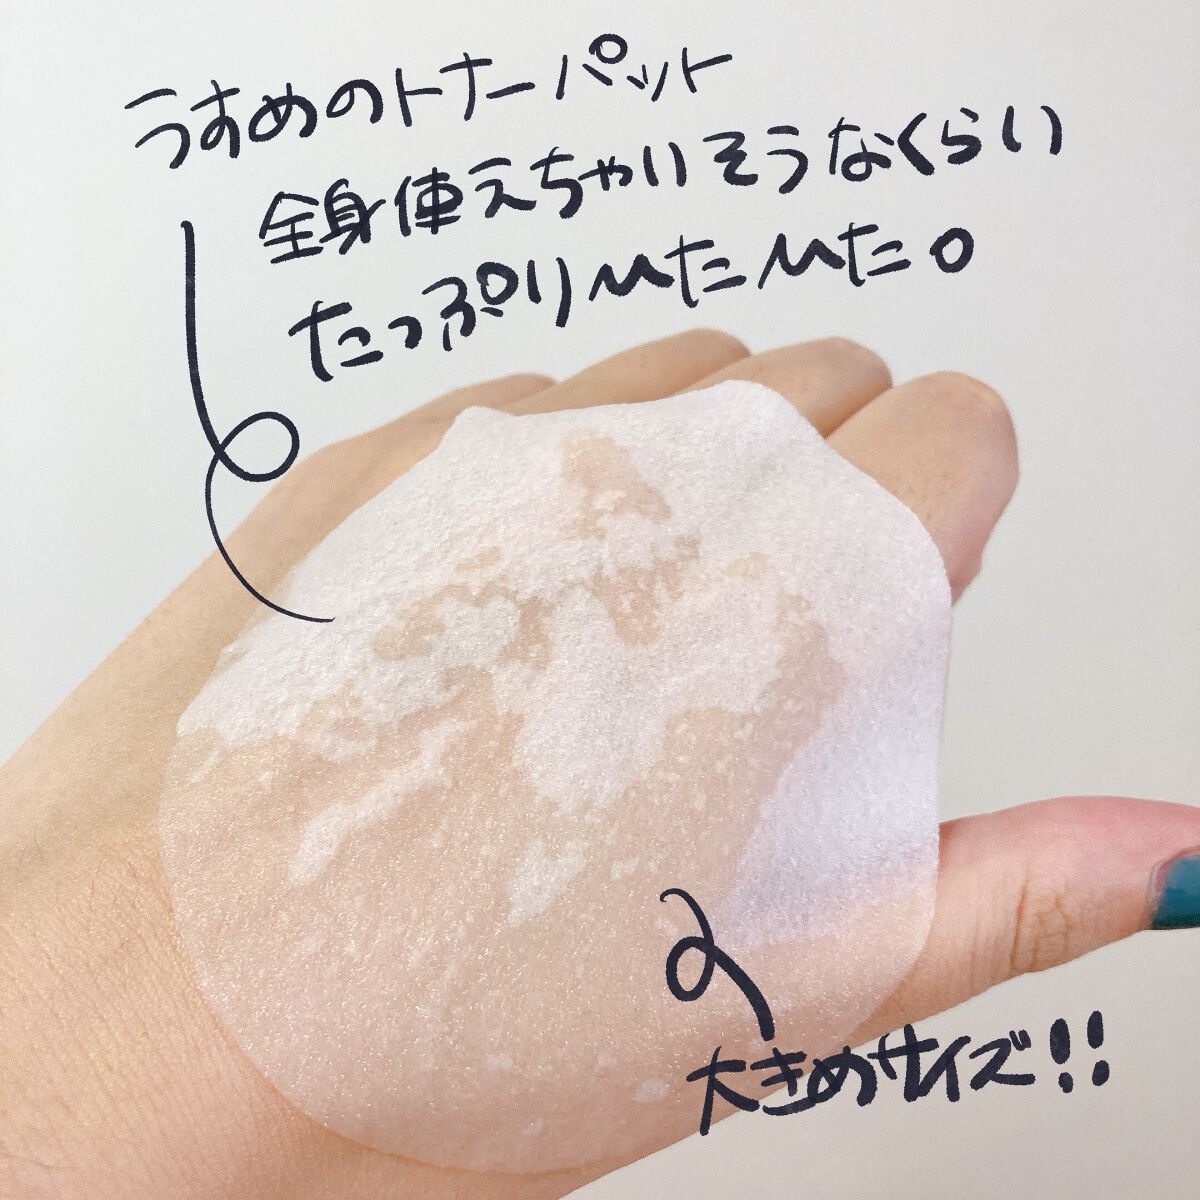 うすめのトナーパット
全身使えちゃいそうなくらい
たっぷりひたひた。
大きめサイズ!!